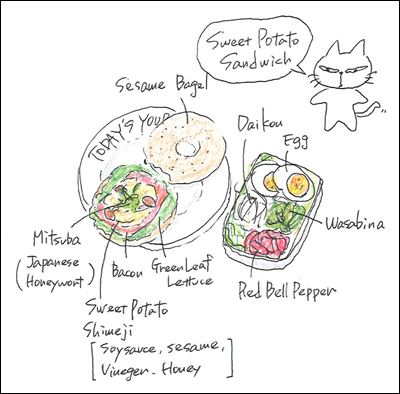 Sweet Potato
Sandwich
Sesame Bagel
TODAY'S YOUR
Daikon
Egg
Wasabina
Mitsuba
(Japanese
Honeywort)
Bacon
Green Leaf
Lettuce
Red Bell Pepper
Sweet Potato
Shimeji
[Soysauce, sesame,
Vineger. Honey]